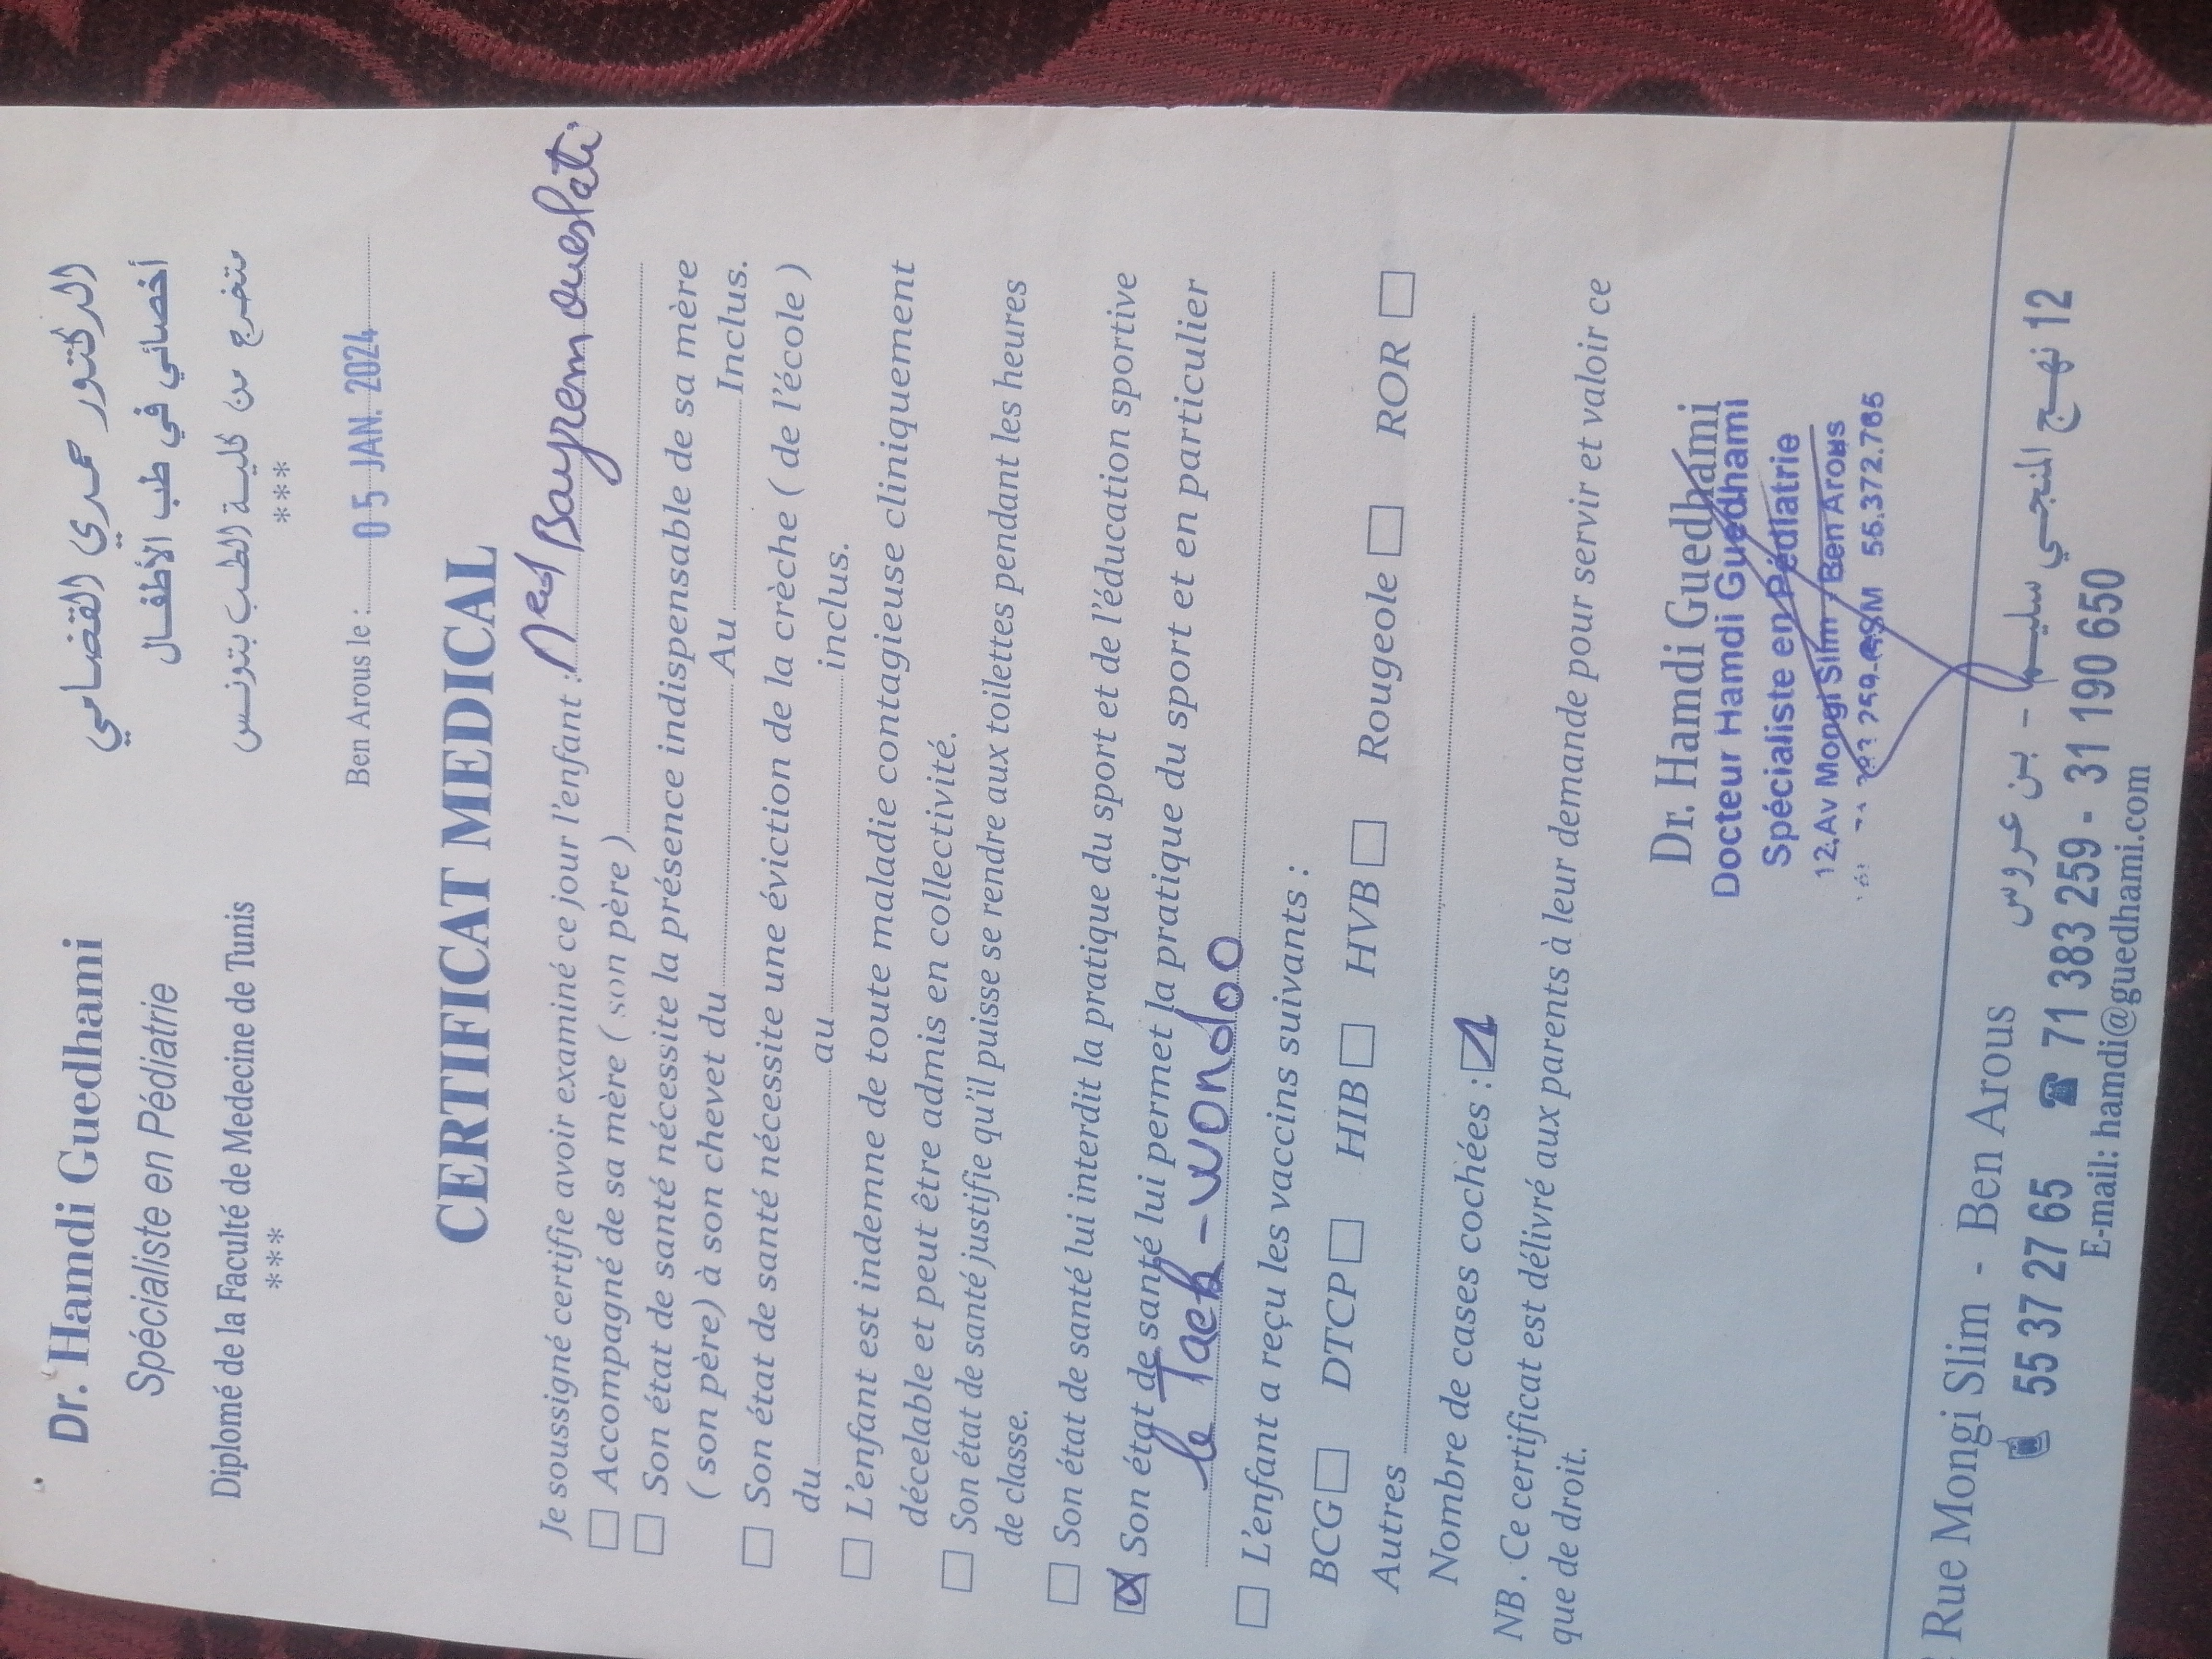 Dr. Hamdi Guedhami
Spécialiste en Pédiatrie
Diplomé de la Faculté de Medecine de Tunis
***
الدكتور حمدي القضامي
أخصائي في طب الأطفال
متخرج من كلية الطب بتونس
***
Ben Arous le : 05 JAN. 2024
CERTIFICAT MEDICAL
Je soussigné certifie avoir examiné ce jour l'enfant : Bayrem oueslati
Accompagné de sa mère ( son père )
Son état de santé nécessite la présence indispensable de sa mère
( son père) à son chevet du Au Inclus.
Son état de santé nécessite une éviction de la crèche ( de l'école )
du au inclus.
L'enfant est indemne de toute maladie contagieuse cliniquement
décelable et peut être admis en collectivité.
Son état de santé justifie qu'il puisse se rendre aux toilettes pendant les heures
de classe.
Son état de santé lui interdit la pratique du sport et de l'éducation sportive
Son état de santé lui permet la pratique du sport et en particulier
le Taek-wondoo
L'enfant a reçu les vaccins suivants :
BCG DTCP HIB HVB Rougeole ROR
Autres
Nombre de cases cochées : 1
NB . Ce certificat est délivré aux parents à leur demande pour servir et valoir ce
que de droit.
Dr. Hamdi Guedhami
Docteur Hamdi Guedhami
Spécialiste en Pédiatrie
12,Av Mongi Slim - Ben Arous
GSM 56.372.765
Rue Mongi Slim - Ben Arous
12 نهج المنجي سليم - بن عروس
55 37 27 65 ☎ 71 383 259 - 31 190 650
E-mail: hamdi@guedhami.com